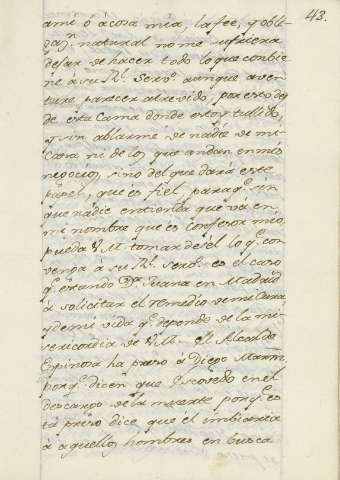 43.
ami ó á cosa mia, la fee, y obli-
gaz.n natural no me sufriera
dejar de hacer todo lo que conbie
ne á su R.l Servo. aunque aven
ture parecer atrevido, por esto des
de esta Cama donde estoy tullido,
y sin ablarme de nadie de mi
Casa ni de los que andan en mis
negocios, sino del que dará este
papel, que es fiel para q.e sin
que nadie entienda que vá en
mi nombre que es confesor mio,
pueda V.M. tomar de el lo q.e con
venga á su R.l Serbo. es el caso
q.e estando D.a Juana en Madrid
á solicitar el remedio de mi Cura,
y de mi vida q.e depende de la mi
sericordia de V.M. el Alcalde
Espinosa ha preso á Diego Martin
porq.e dicen que Escovedo en el
descargo de la muerte porq.e es
tá preso dice que él imbiaria
á aquellos hombres en busca